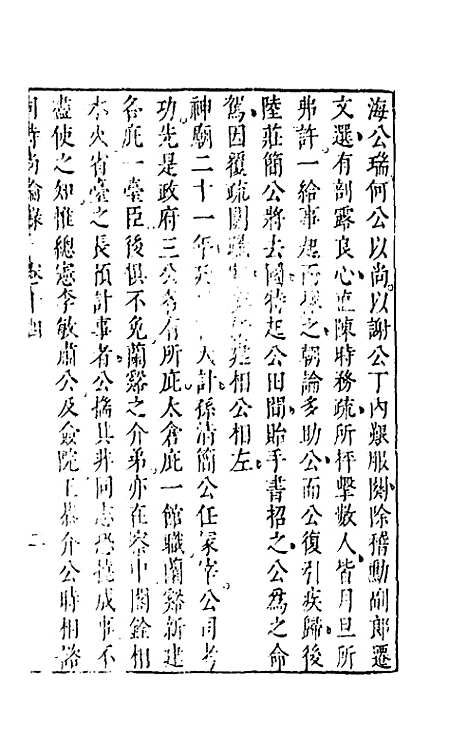 海公瑞何公以尚以謝公丁內艱服闋除稽勳副郎遷
文選有剖露良心直陳時務疏所抨擊數人皆月旦所
弗許一給事起而之朝論多助公而公復引疾歸後
陸莊簡公將去國特起公田間貽手書招之公為之命
駕因覆疏建相公相左
神廟二十一年大計係清簡公任冢宰公司考
功先是政府三公各有所庇太倉庇一館職蘭谿新建
各庇一臺臣後俱不免蘭谿之介弟亦在察中閣銓相
水火省臺之長預計事者公擔其非同志恐撓成事不
盡使之知惟總憲李敏肅公及僉院王恭介公時相諮